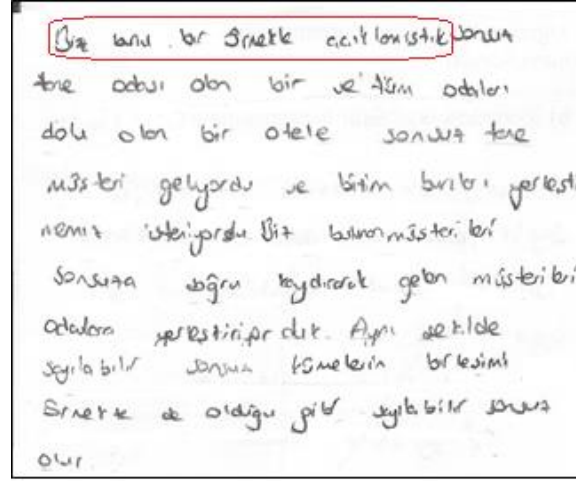 Biz bunu bir örnekle açıklamıştık sonsuz
tane odası olan bir ve tüm odaları
dolu olan bir otele sonsuz tane
müşteri geliyordu ve bizim bunları yerleşti
memiz isteniyordu Biz bulunan müşterileri
sonsuza doğru kaydırarak gelen müşterileri
odalara yerleştiriyorduk. Aynı şekilde
sayılabilir sonsuz kümelerin birleşimi
örnekte de olduğu gibi sayılabilir sonsuz
olur.